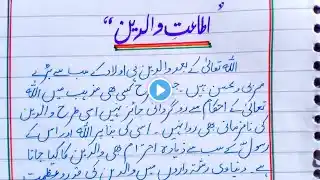 "اطاعت والدین"
اللہ تعالیٰ کے بعد والدین ہی اولاد کے سب سے بڑے
مربی و محسن ہیں۔ جس طرح کسی بھی مذہب میں اللہ
تعالیٰ کے احکام سے روگردانی جائز نہیں اسی طرح والدین
کی نافرمانی بھی روا نہیں۔ اسی کی بنا پر اللہ اور اس کے
رسولؐ کے سب سے زیادہ احترام بھی والدین کا کیا جاتا
ہے۔ دنیاوی رشتہ داروں میں والدین کی قدر و عظمت